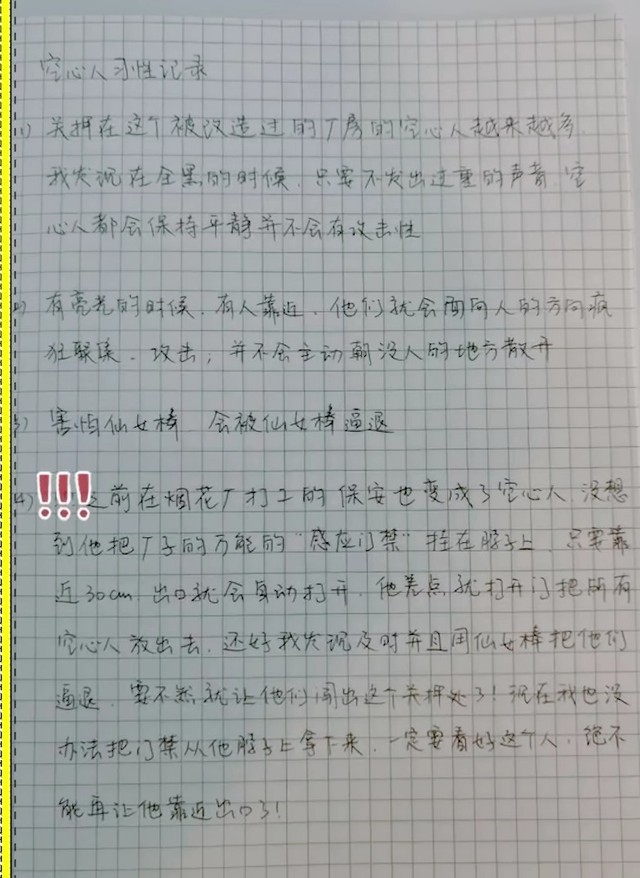 空心人习性记录
1) 关押在这个被改造过的厂房的空心人越来越多.
我发现在全黑的时候.只要不发出过重的声音.空
心人都会保持平静并不会有攻击性
2) 有亮光的时候.有人靠近.他们就会面向人的方向疯
狂聚集.攻击;并不会主动朝没人的地方散开
3) 害怕仙女棒 会被仙女棒逼退
4) !!!之前在烟花厂打工的保安也变成了空心人.没想
到他把厂子的万能的"感应门禁"挂在脖子上.只要靠
近30cm.出口就会自动打开.他差点就打开门把所有
空心人放出去.还好我发现及时并且用仙女棒把他们
逼退.要不然就让他们闯出这个关押处了!现在我也没
办法把门禁从他脖子上拿下来.一定要看好这个人.绝不
能再让他靠近出口了!